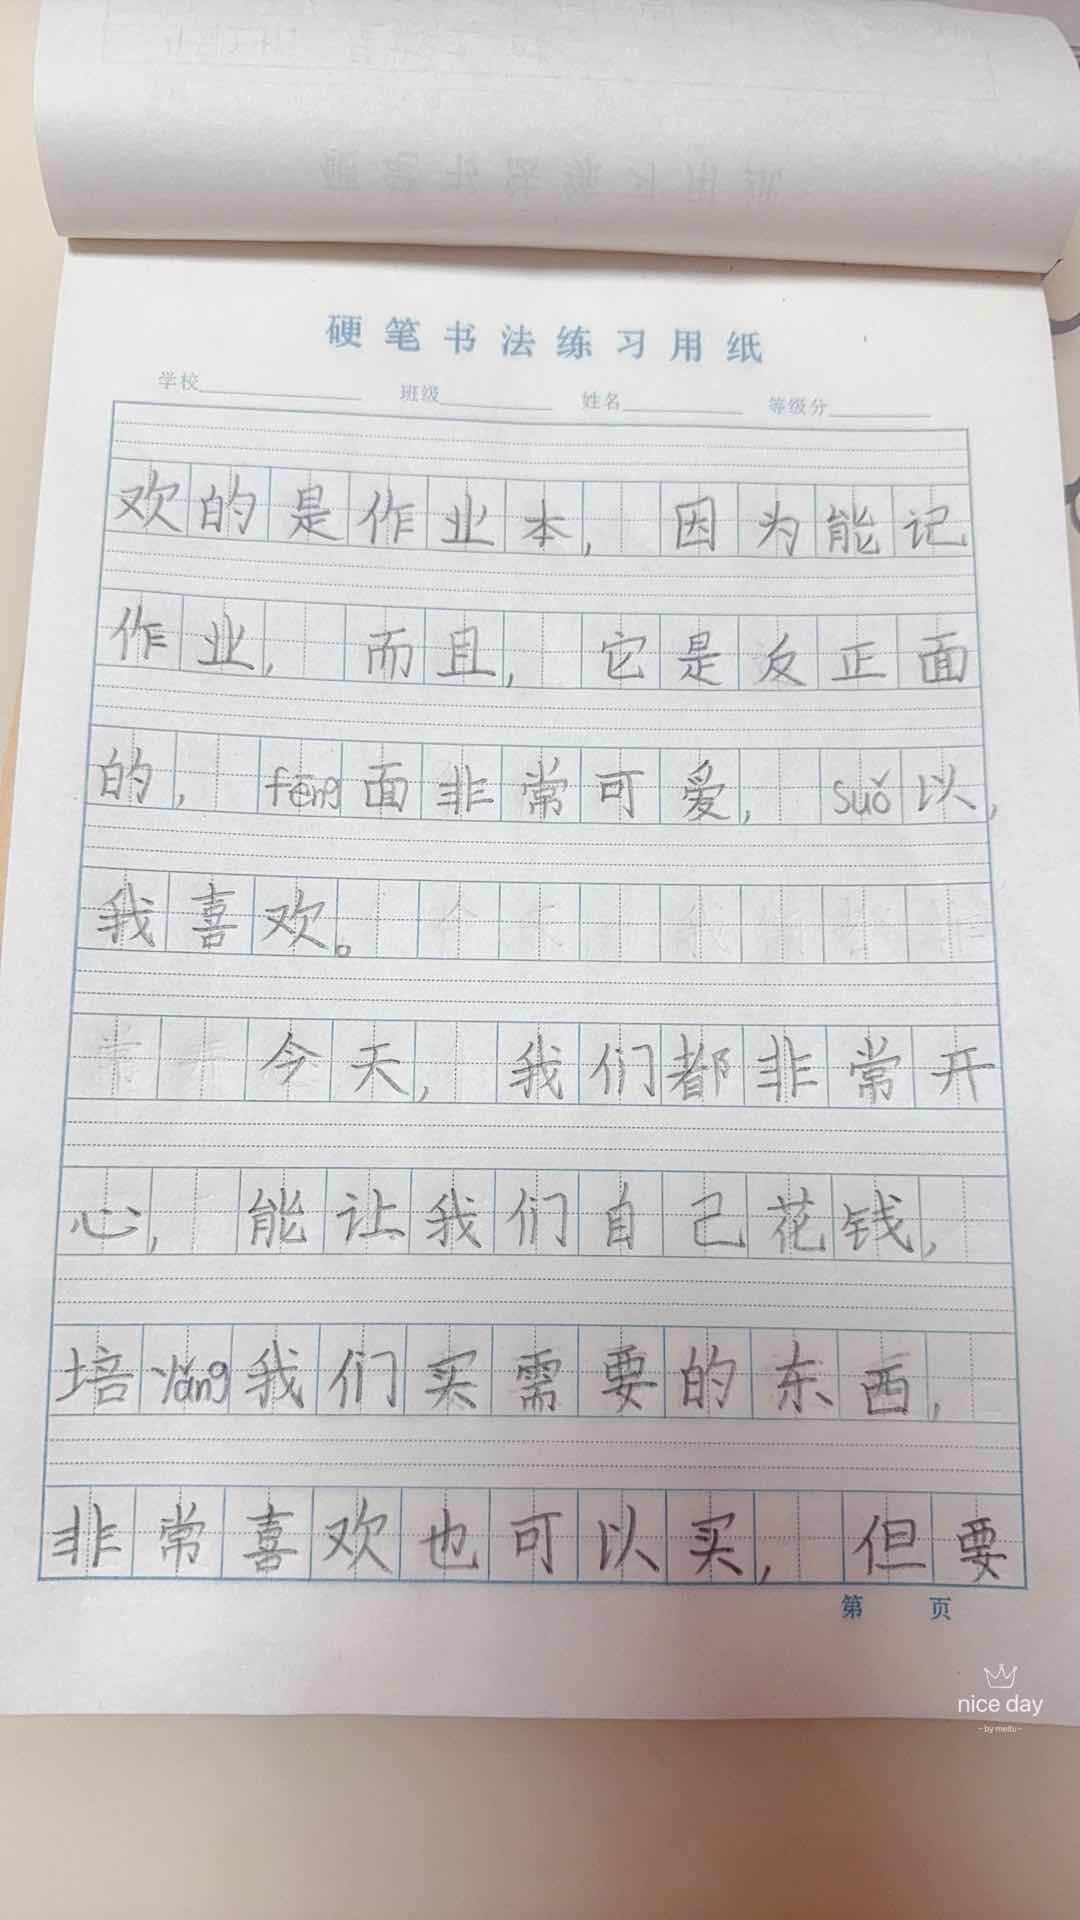 硬笔书法练习用纸
学校 班级 姓名 等级分
欢的是作业本，因为能记
作业，而且，它是反正面
的，fēng面非常可爱，suǒ以，
我喜欢。
今天，我们都非常开
心，能让我们自己花钱，
培yǎng我们买需要的东西，
非常喜欢也可以买，但要
第 页
nice day
-by meitu-